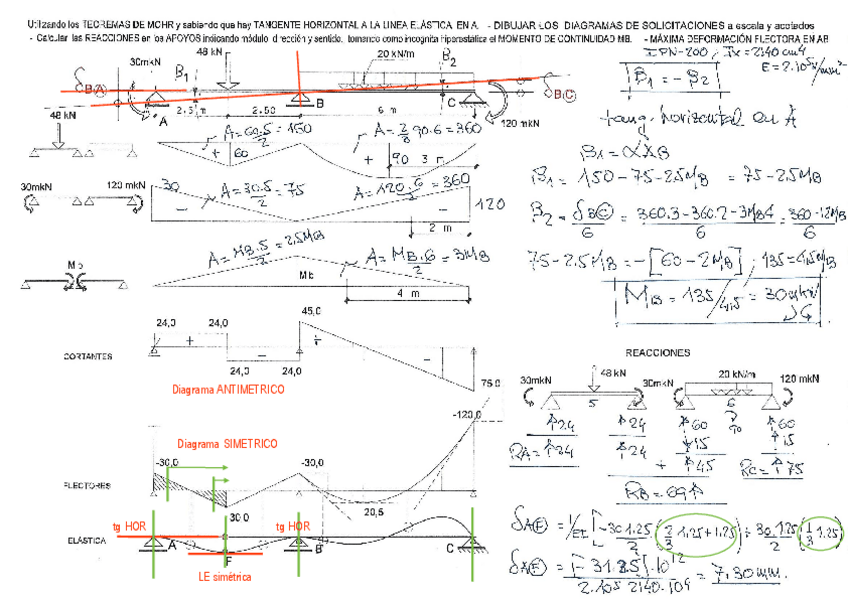 Utilizando los TEOREMAS DE MOHR y sabiendo que hay TANGENTE HORIZONTAL A LA LINEA ELÁSTICA EN A. - DIBUJAR LOS DIAGRAMAS DE SOLICITACIONES a escala y acotados
- Calcular las REACCIONES en los APOYOS indicando módulo, dirección y sentido, tomando como incognita hiperestática el MOMENTO DE CONTINUIDAD MB. - MÁXIMA DEFORMACIÓN FLECTORA EN AB
IPN-200, Ix = 2140 cm4
E = 2.10⁵ N/mm²
48 kN
20 kN/m
30mkN
B1
B2
δBA
δBC
A
B
C
2.5 m
2.50
6 m
120 mkN
B1 = - B2
tang. horizontal en A
48 kN
A = 60.5/2 = 150
A = 2/3 90.6 = 360
+
60
+
90
3 m
B1 = ∝AB
B1 = 150 - 75 - 2.5MB = 75 - 2.5MB
30mkN
120 mkN
30
A = 30.5/2 = 75
A = 120.6/2 = 360
120
2 m
B2 = δBC/6 = 360.3 - 360.2 - 3MB4/6 = 360 - 12MB/6
Mb
A = MB.5/2 = 2.5MB
A = MB.6/2 = 3MB
Mb
4 m
75 - 2.5MB = -[60 - 2MB] ; 135 = 4,5MB
MB = 135/4,5 = 30 mkN
24,0
24,0
45,0
CORTANTES
24,0
24,0
75.0
Diagrama ANTIMETRICO
REACCIONES
30mkN
48 kN
30mkN
20 kN/m
120 mkN
5
6
↑24
↑24
↑60
↑60
90
↓15
↑15
RA = ↑24
↑24
+
↑45
RC = ↑75
RB = 69↑
-120,0
Diagrama SIMETRICO
-30,0
-30,0
FLECTORES
30.0
20,5
tg HOR
tg HOR
ELÁSTICA
A
F
B
C
LE simétrica
δAF = 1/EI [-30 1.25/2 (2/3 1.25 + 1.25) + 30 1.25/2 (1/3 1.25)]
δAF = [- 31.25].10¹²/2.10⁵ 2140.10⁴ = 7,30 mm.